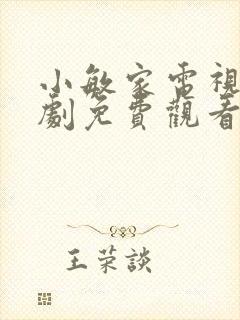 小敏家電視
劇免費觀看
王荣談